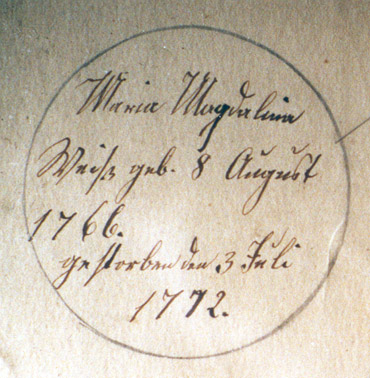 Maria Magdalina
Weiß geb. 8 August
1766.
gestorben den 3 Juli
1772.